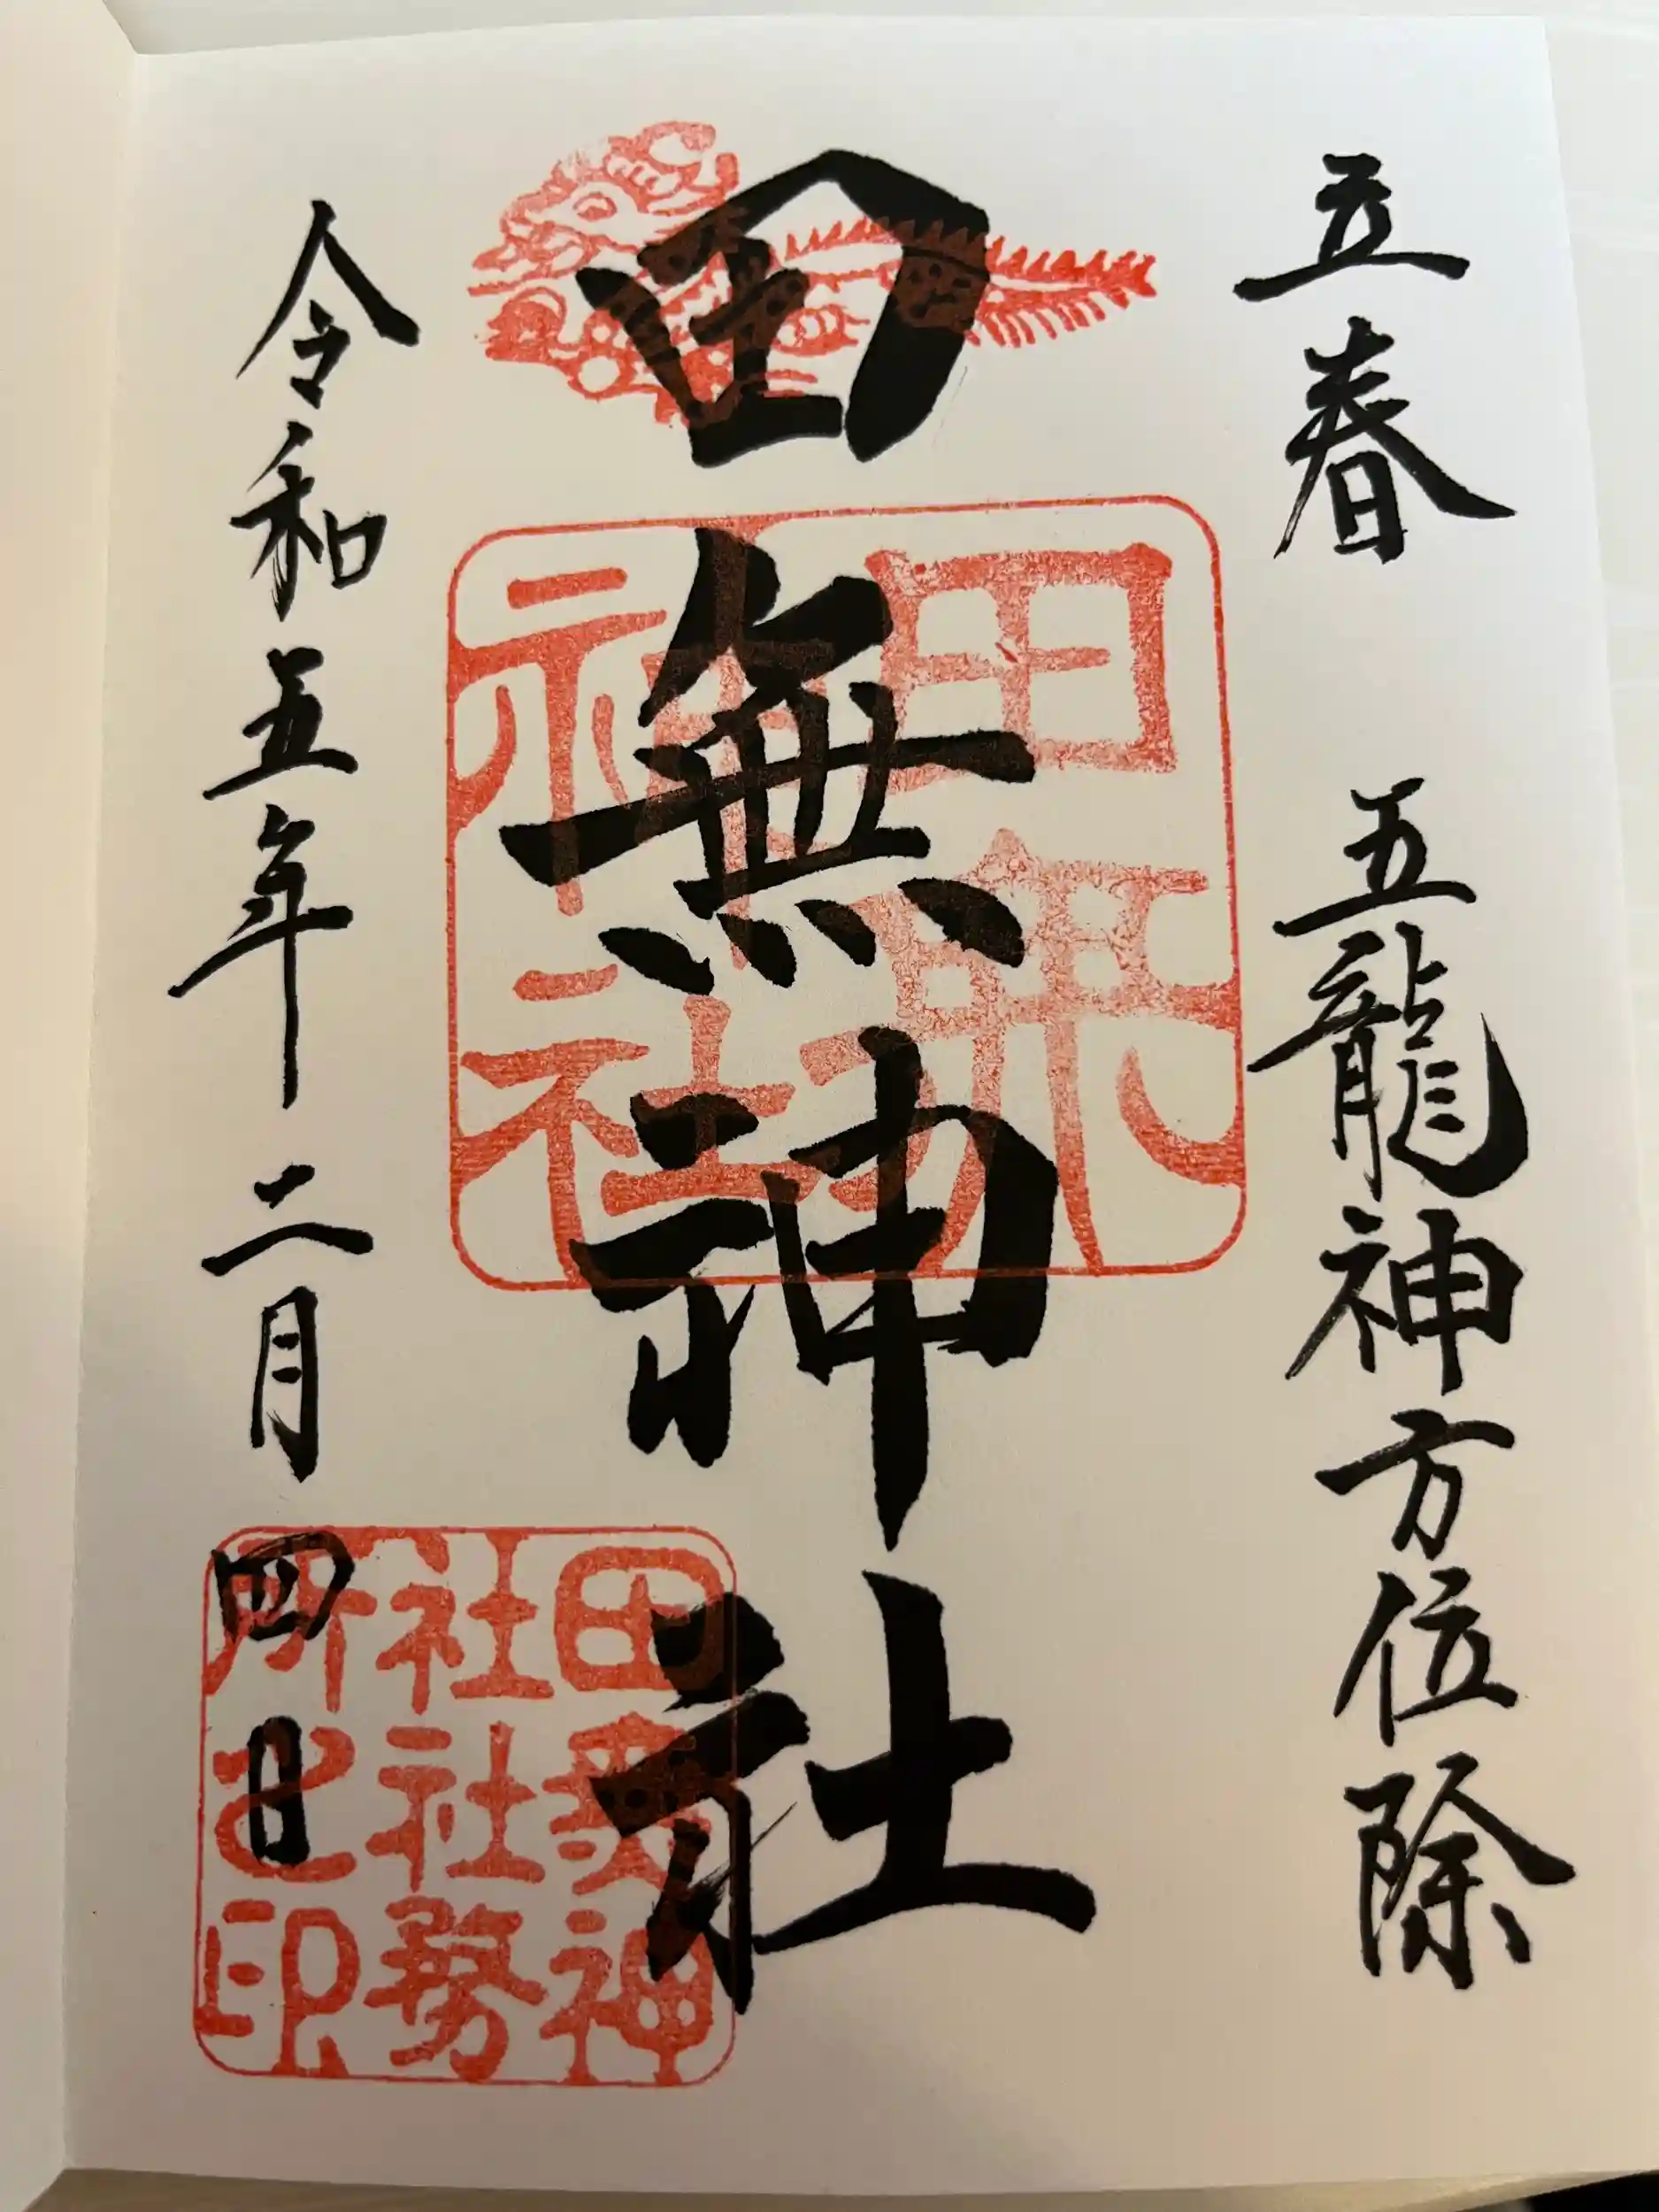 立春 五龍神方位除
田無神社
令和五年二月四日
田無神社
田無神
社社務
所之印